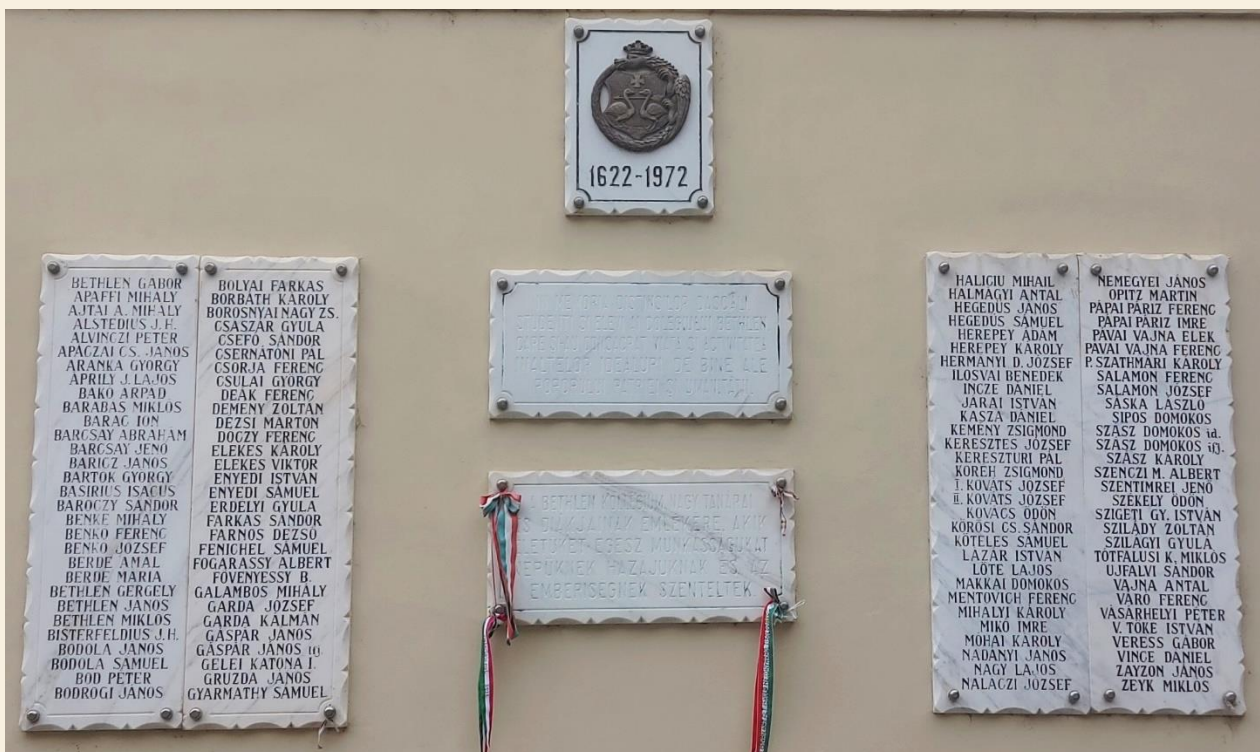 1622-1972
BETHLEN GÁBOR
APAFFI MIHÁLY
AJTAI A. MIHÁLY
ALSTEDIUS J.H.
ALVINCZI PÉTER
APÁCZAI CS. JÁNOS
ARANKA GYÖRGY
ÁPRILY J. LAJOS
BAKÓ ÁRPÁD
BARABÁS MIKLÓS
BARAC ION
BARCSAY ÁBRAHÁM
BARCSAY JENŐ
BARICZ JÁNOS
BARTÓK GYÖRGY
BASIRIUS ISACUS
BARÓCZY SÁNDOR
BENKE MIHÁLY
BENKŐ FERENC
BENKŐ JÓZSEF
BERDE AMÁL
BERDE MÁRIA
BETHLEN GERGELY
BETHLEN JÁNOS
BETHLEN MIKLÓS
BISTERFELDIUS J.H.
BODOLA JÁNOS
BODOLA SÁMUEL
BOD PÉTER
BODROGI JÁNOS
BOLYAI FARKAS
BORBÁTH KÁROLY
BOROSNYAI NAGY ZS.
CSÁSZÁR GYULA
CSEFÓ SÁNDOR
CSERNÁTONI PÁL
CSORJA FERENC
CSULAI GYÖRGY
DEÁK FERENC
DEMÉNY ZOLTÁN
DÉZSI MÁRTON
DÓCZY FERENC
ELEKES KÁROLY
ELEKES VIKTOR
ENYEDI ISTVÁN
ENYEDI SÁMUEL
ERDÉLYI GYULA
FARKAS SÁNDOR
FARNOS DEZSŐ
FENICHEL SÁMUEL
FOGARASSY ALBERT
FÖVENYESSY B.
GALAMBOS MIHÁLY
GARDA JÓZSEF
GARDA KÁLMÁN
GÁSPÁR JÁNOS
GÁSPÁR JÁNOS ifj.
GELEI KATONA I.
GRUZDA JÁNOS
GYARMATHY SÁMUEL
STUDENȚI ȘI ELEVI AI COLEGIULUI BETHLEN
CARE ȘI-AU CONSACRAT VIAȚA ȘI ACTIVITATEA
ÎNALTELOR IDEALURI DE BINE ALE
POPORULUI PATRIEI ȘI UMANITĂȚII
A BETHLEN KOLLÉGIUM NAGY TANÁRAI
S DIÁKJAINAK EMLÉKÉRE, AKIK
ÉLETÜKET EGÉSZ MUNKÁSSÁGUKAT
NÉPÜKNEK HAZÁJUKNAK ÉS AZ
EMBERISÉGNEK SZENTELTÉK
HALICIU MIHAIL
HALMÁGYI ANTAL
HEGEDŰS JÁNOS
HEGEDŰS SÁMUEL
HEREPEY ÁDÁM
HEREPEY KÁROLY
HERMÁNYI D. JÓZSEF
ILOSVAI BENEDEK
INCZE DÁNIEL
JÁRAI ISTVÁN
KASZA DÁNIEL
KEMÉNY ZSIGMOND
KERESZTES JÓZSEF
KERESZTURI PÁL
KÓREH ZSIGMOND
I. KOVÁTS JÓZSEF
II. KOVÁTS JÓZSEF
KOVÁCS ÖDÖN
KŐRÖSI CS. SÁNDOR
KÖTELES SÁMUEL
LÁZÁR ISTVÁN
LŐTE LAJOS
MAKKAI DOMOKOS
MENTOVICH FERENC
MIHÁLYI KÁROLY
MIKÓ IMRE
MOHAI KÁROLY
NADÁNYI JÁNOS
NAGY LAJOS
NALÁCZI JÓZSEF
NEMEGYEI JÁNOS
OPITZ MARTIN
PÁPAI PÁRIZ FERENC
PÁPAI PÁRIZ IMRE
PÁVAI VAJNA ELEK
PÁVAI VAJNA FERENC
P. SZATHMÁRI KÁROLY
SALAMON FERENC
SALAMON JÓZSEF
SÁSKA LÁSZLÓ
SIPOS DOMOKOS
SZÁSZ DOMOKOS id.
SZÁSZ DOMOKOS ifj.
SZÁSZ KÁROLY
SZENCZI M. ALBERT
SZENTIMREI JENŐ
SZÉKELY ÖDÖN
SZIGETI GY. ISTVÁN
SZILÁDY ZOLTÁN
SZILÁGYI GYULA
TÓTFALUSI K. MIKLÓS
ÚJFALVI SÁNDOR
VAJNA ANTAL
VÁRÓ FERENC
VÁSÁRHELYI PÉTER
V. TŐKE ISTVÁN
VERESS GÁBOR
VINCE DÁNIEL
ZAYZON JÁNOS
ZEYK MIKLÓS